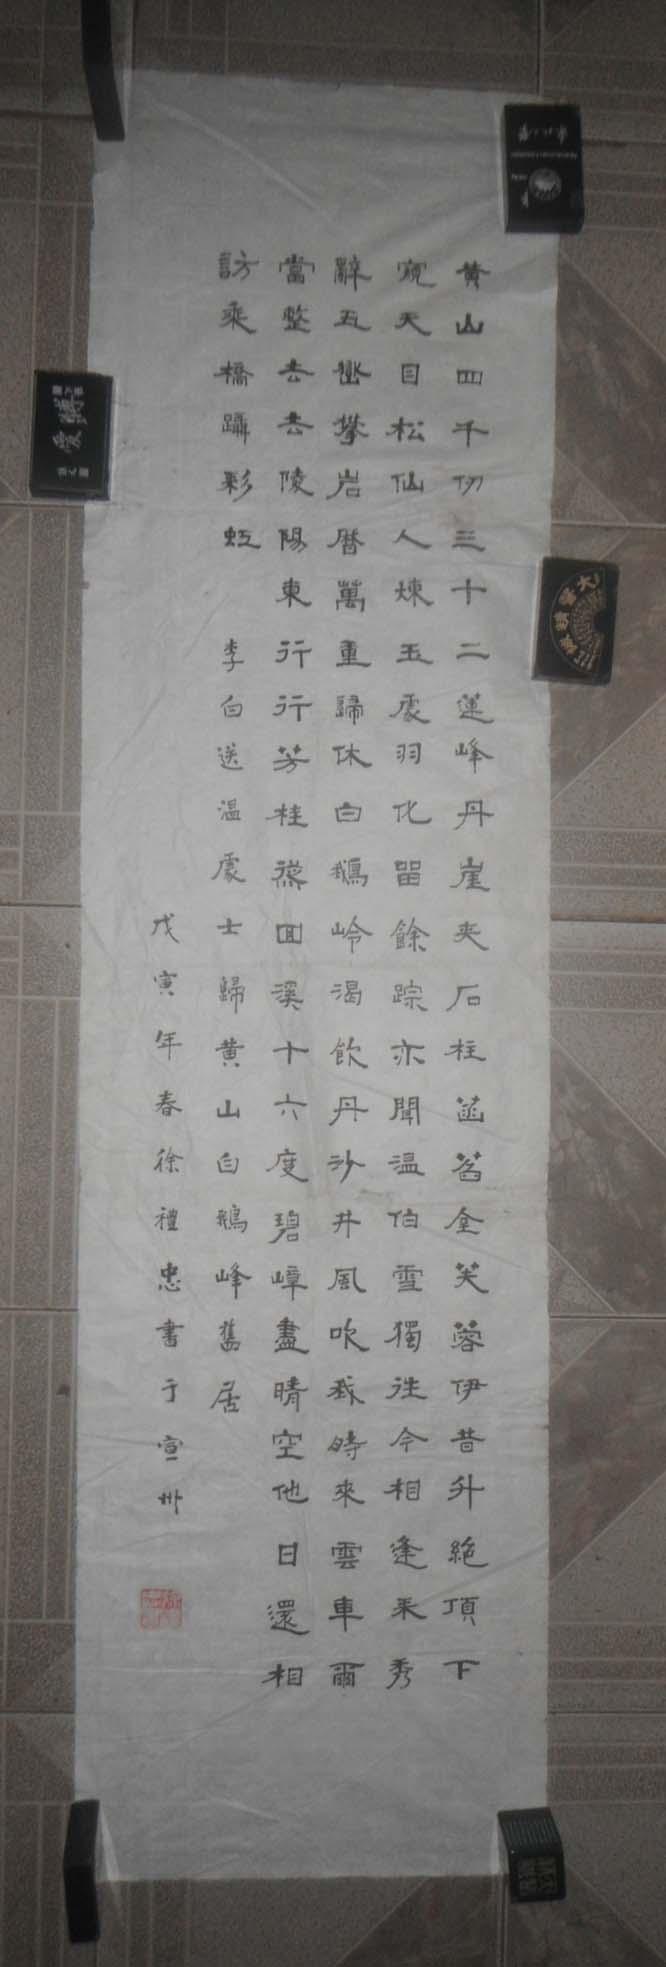 黄山四千仞三十二蓮峰丹崖夾石柱菡萏金芙蓉伊昔升絶頂下
窺天目松仙人煉玉處羽化留餘踪亦聞温伯雪獨往今相逢采秀
辭五嶽攀岩曆萬重歸休白鵝岭渴飲丹沙井風吹我時來雲車爾
當整去去陵陽東行行芳桂叢回溪十六度碧嶂盡晴空他日還相
訪乘橋躡彩虹 李白送温處士歸黄山白鵝峰舊居
戊寅年春徐禮忠書于宣州